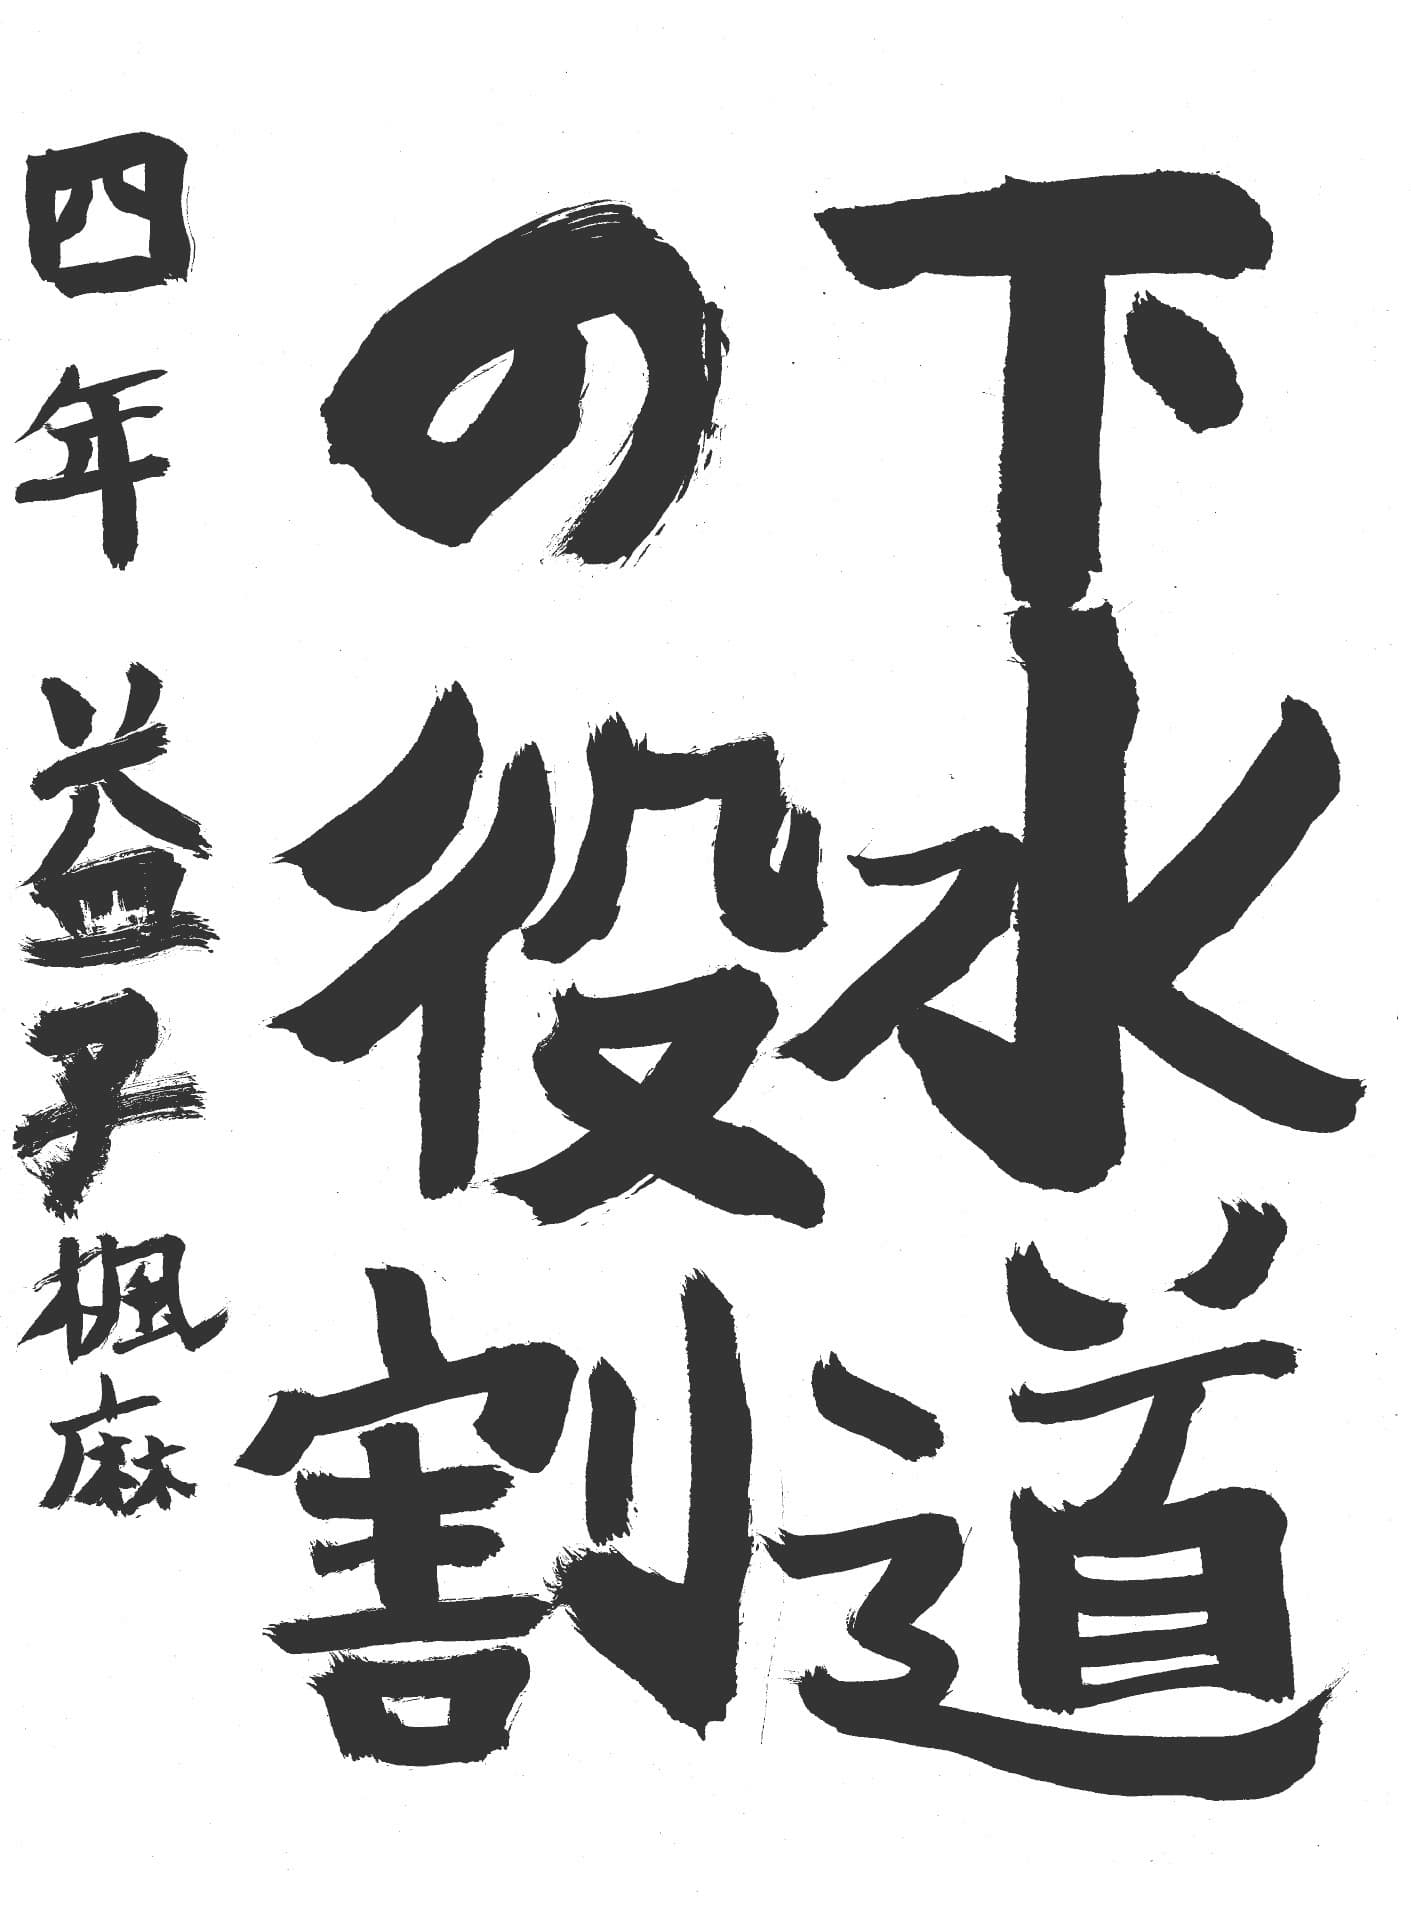 下水道
の役割
四年 益子楓麻